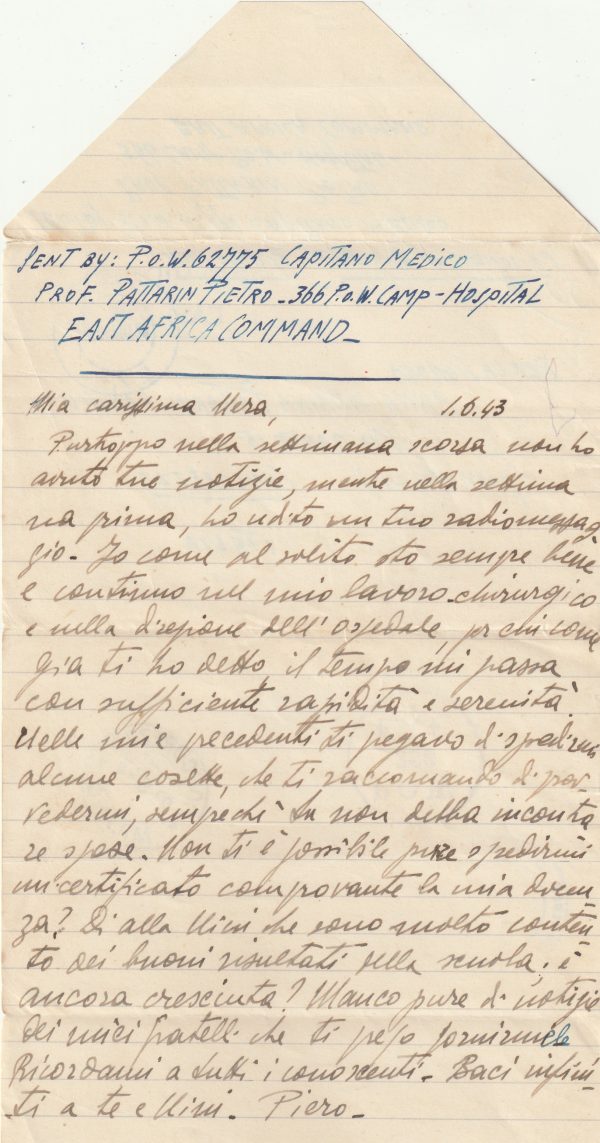 SENT BY: P.O.W. 62775 CAPITANO MEDICO
PROF. PATTARIN PIETRO - 366 P.O.W. CAMP - HOSPITAL
EAST AFRICA COMMAND -
Mia carissima Nera, 1.6.43
Purtroppo nella settimana scorsa non ho
avuto tue notizie, mentre nella settima
na prima, ho udito un tuo radiomessag
gio - Io come al solito sto sempre bene
e continuo nel mio lavoro chirurgico
e nella direzione dell'ospedale, per cui come
già ti ho detto, il tempo mi passa
con sufficiente rapidità e serenità.
Nelle mie precedenti ti pregavo di spedirmi
alcune cosette, che ti raccomando di prov
vedermi, sempechè tu non debba incontra
re spese. Non ti è possibile pure spedirmi
un certificato comprovante la mia docen-
za? Di alla Nini che sono molto conten-
to dei buoni risultati della scuola; è
ancora cresciuta? Manco pure di notizie
dei miei fratelli che ti prego fornirmele
Ricordami a tutti i conoscenti - Baci infini-
ti a te e Nini - Piero -